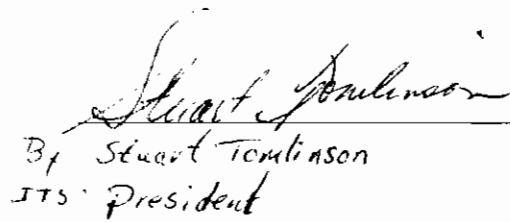 Stuart Tomlinson
By Stuart Tomlinson
ITS: President